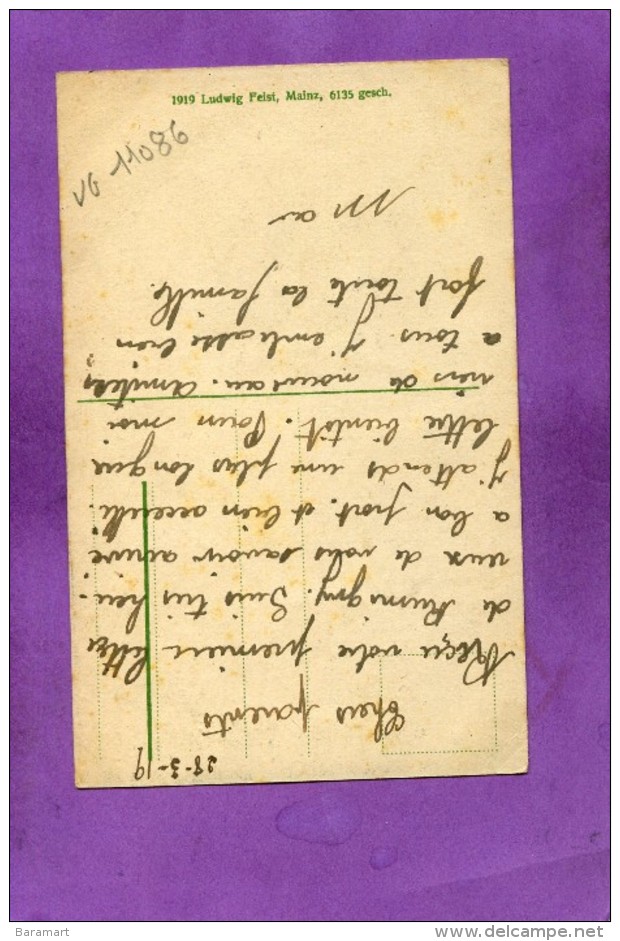 1919 Ludwig Feist, Mainz, 6135 gesch.
VG 11086
28-3-19
Chers parents
Reçu votre premiere lettre
de Rumigny. Suis très heu-
reux de vous savoir arrivé
a bon port. et bien accueilli.
J'attends une plus longue
lettre bientôt. Pour moi
rien de nouveau. Amitiés
a tous. J'embrasse bien
fort toute la famille.
Baramart
www.delcampe.net